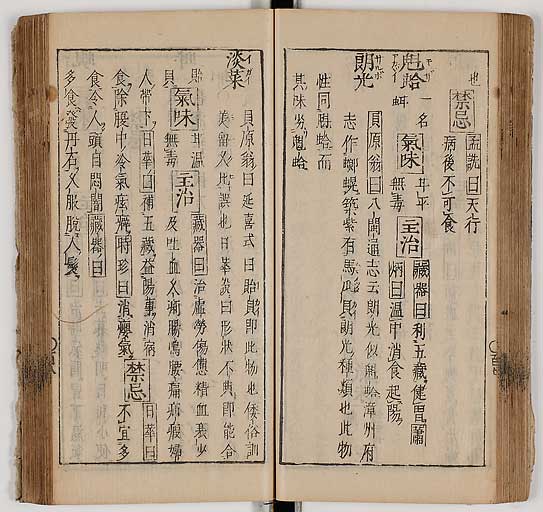 也 禁忌 孟詵曰天行
病後不可食
魁蛤 一名蚶 氣味 甘平無毒 主治 藏器曰利五藏健胃 蕭
炳曰温中消食起陽
朗光 貝原翁曰八閩通志云朗光似魁蛤漳州府
志作 築紫有馬 貝朗光種類也此物
性同魁蛤而
其味劣魁蛤
淡菜 貝原翁曰延喜式曰貽貝即此物也倭俗訓
誤也 曰形狀不典即能合
貽貝 氣味 甘温無毒 主治 藏器曰治虚勞傷憊精血衰少
及吐血久痢腸鳴腰痛疝瘕婦
人帶下 日華曰補五藏益陽事消宿
食除腰中冷氣痃癖 時珍曰消癭氣 禁忌 日華曰不宜多
食令人頭目悶闇 藏器曰
多食發丹石久服脱人髮